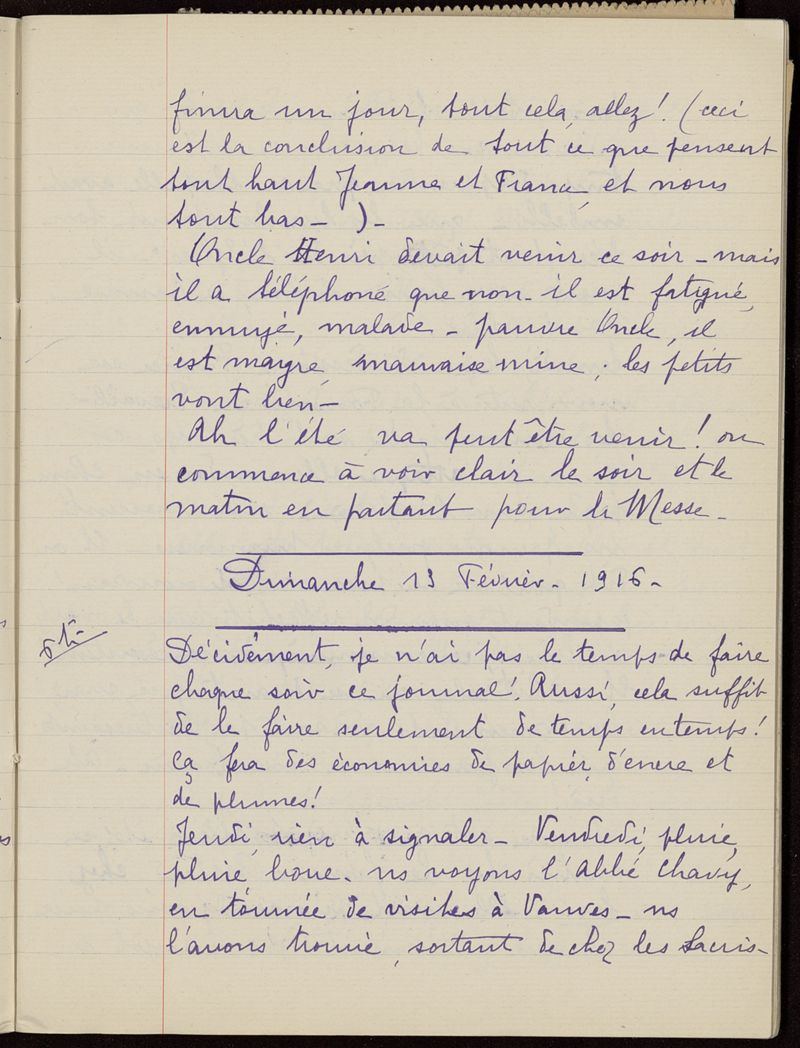 finira un jour, tout cela, allez! (ceci
est la conclusion de tout ce que pensent
tout haut Jeanne et France, et nous
tout bas — ) —
Oncle Henri devait venir ce soir — mais
il a téléphoné que non - il est fatigué,
ennuyé, malade — pauvre Oncle, il
est maigre, mauvaise mine ; les petits
vont bien —
Ah l'été va peut être venir ! on
commence à voir clair le soir et le
matin en partant pour la Messe —
Dimanche 13 Février - 1916 -
Décidément, je n'ai pas le temps de faire
chaque soir ce journal! Aussi, cela suffit
de le faire seulement de temps en temps!
ça fera des économies de papier, d'encre et
de plumes!
Jeudi, rien à signaler — Vendredi, pluie,
pluie, boue - ns voyons l'abbé Chavy,
en tournée de visites à Vanves — ns
l'avons trouvé, sortant de chez les Sacris-